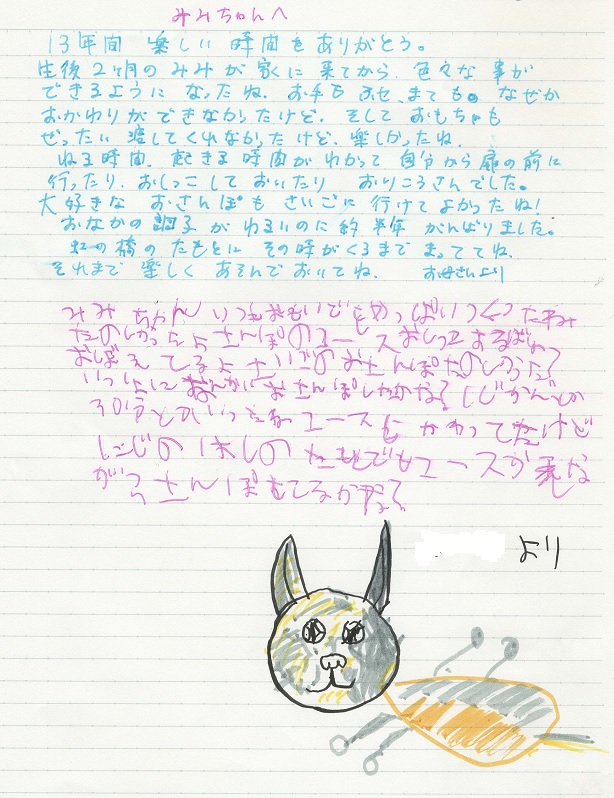 みみちゃんへ
13年間 楽しい 時間を ありがとう。
生後2ヶ月の みみが 家に 来てから、色々な 事が
できるように なったね。お手も ふせ、まても。なぜか
おかわりが できなかったけど。そして おもちゃも
ぜったい 渡してくれなかったけど、楽しかったね。
ねる時間、起きる 時間が わかって 自分から 扉の前に
行ったり、おしっこして おいたり おりこうさんでした。
大好きな おさんぽも さいごに 行けて よかったね!
おなかの 調子が わるいのに 約 半年 がんばりました。
虹の橋の たもとに その時が くるまで まっててね。
それまで 楽しく あそんで おいてね。 お母さんより
みみちゃん いつもおもいでを いっぱい
たのしかったよ さんぽのコース
おぼえてるよ さいごのおさんぽたのしかった?
いっしょに おさんぽ かな?
30分とか コースも かわってたけど
にじのはしの たもとでもコースが
さんぽも かな?
より